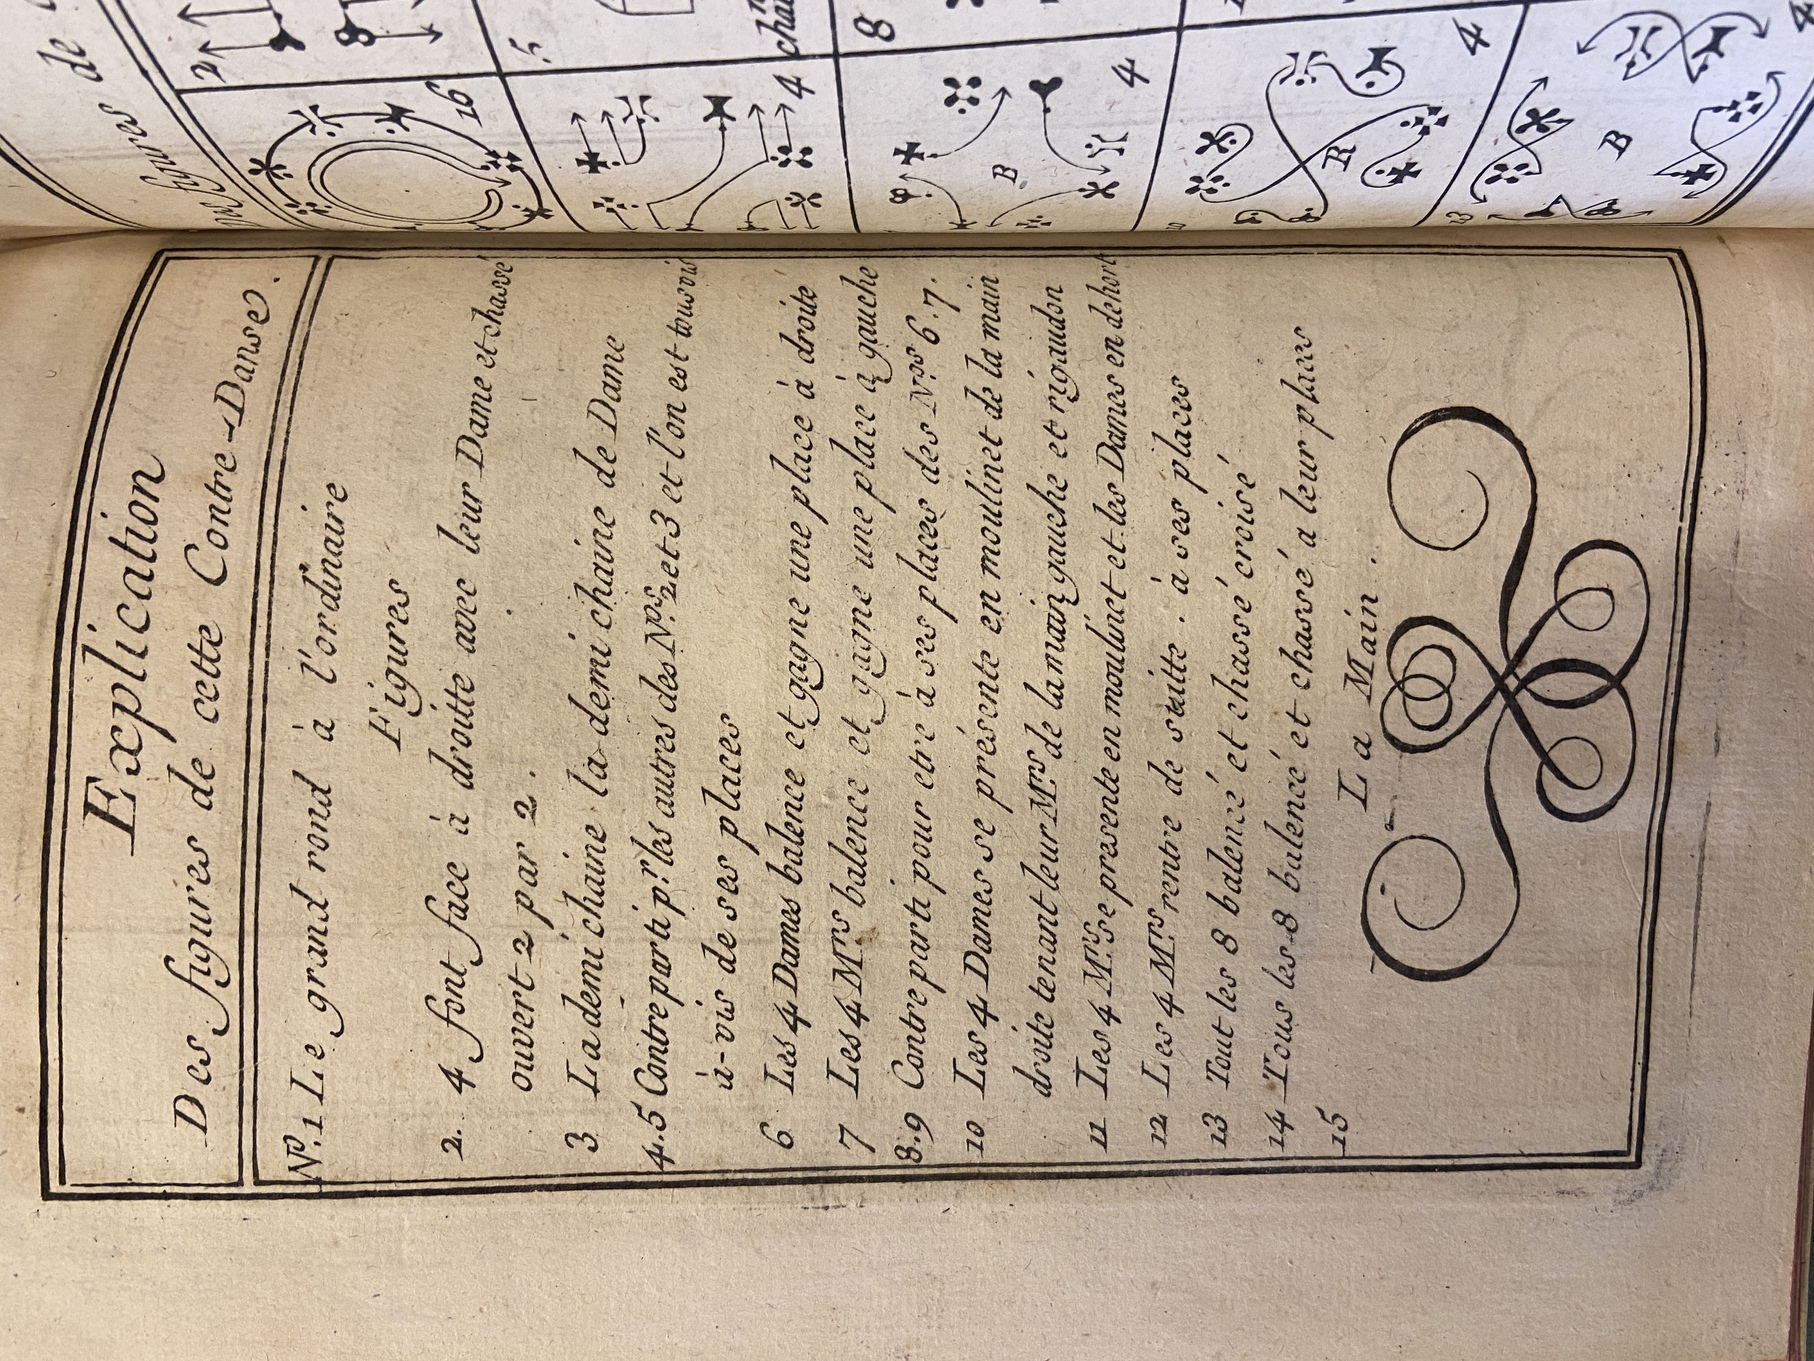 Explication
Des figures de cette Contre-Danse.
N.º 1 Le grand rond à l'ordinaire
Figures
2. 4 font face à droitte avec leur Dame et chassé
ouvert 2 par 2.
3 La demi chaine la demi chaine de Dame
4.5 Contreparti p.r les autres des N.ºs 2 et 3 et l'on est tous vis
à-vis de ses places
6 Les 4 Dames balence et gagne une place à droite
7 Les 4 M.rs balence et gagne une place à gauche
8.9 Contreparti pour etre à ses places des N.ºs 6.7.
10 Les 4 Dames se présente en moulinet de la main
droite tenant leur M.rs de la main gauche et rigaudon
11 Les 4 M.rs se presente en moulinet et les Dames en dehort
12 Les 4 M.rs rentre de suitte . à ses places
13 Tout les 8 balencé et chassé croisé
14 Tous les 8 balencé et chassé a leur places
15 La Main .
figures de
2
16
5
4
8
B
4
R
4
B
4
13